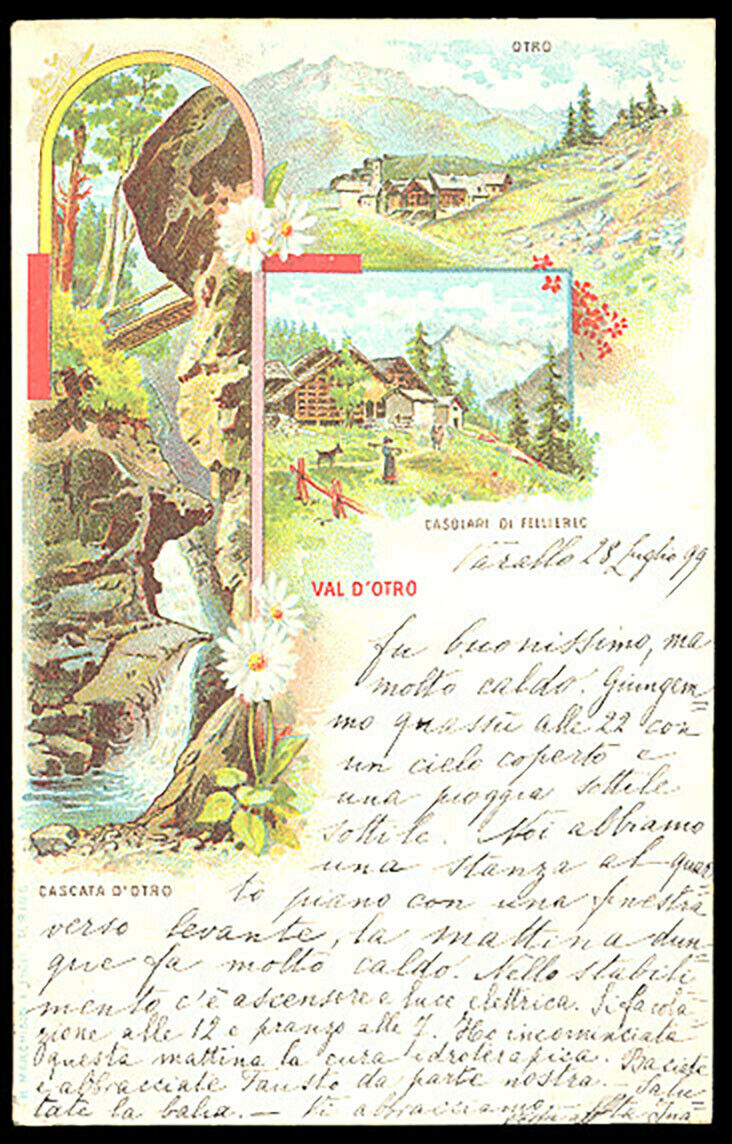 OTRO
CASOLARI DI FELLEREC
Varallo 28 Luglio 99
VAL D'OTRO
fu buonissimo, ma
molto caldo. Giungem=
mo quassù alle 22 con
un cielo coperto e
una pioggia sottile
sottile. Noi abbiamo
una stanza al quar=
CASCATA D'OTRO
to piano con una finestra
verso levante, la mattina dun=
que fa molto caldo. Nello stabili
mento c'è ascensore e luce elettrica. Si fa cola=
zione alle 12 e pranzo alle 7. Ho incominciata
questa mattina la cura idroterapica. Baciate
e abbracciate Fausto da parte nostra. — Salu
tate la balia. — Vi abbracciamo